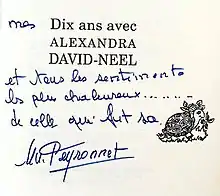 mes Dix ans avec
ALEXANDRA
DAVID-NEEL
et tous les sentiments
les plus chaleureux........
de celle qui fut sa.
M.M. Peyronnet